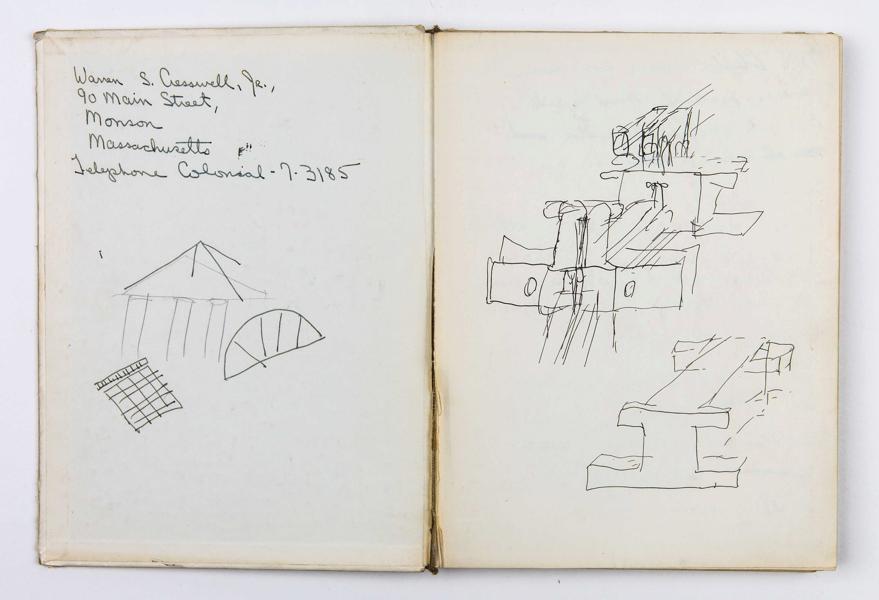 Warren S. Cresswell, Jr.,
90 Main Street,
Monson
Massachusetts
Telephone Colonial - 7-3185